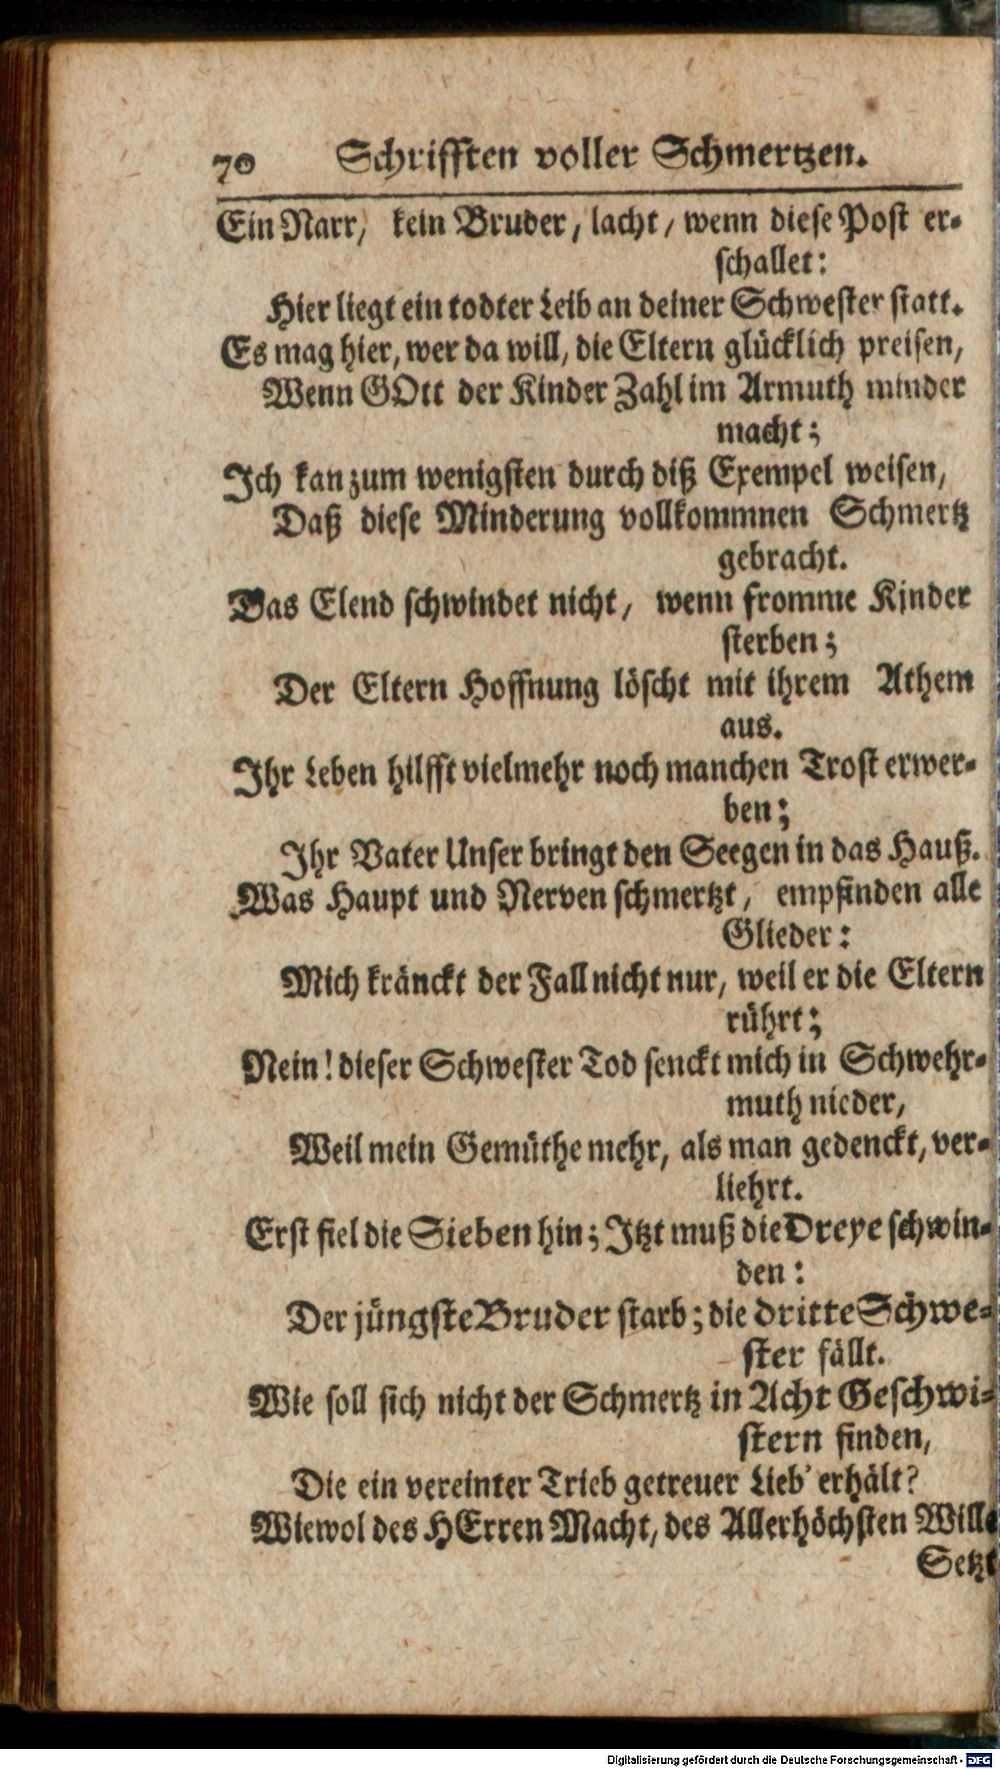 70 Schrifften voller Schmertzen.
Ein Narr, kein Bruder, lacht, wenn diese Post er-
schallet:
Hier liegt ein todter Leib an deiner Schwester statt.
Es mag hier, wer da will, die Eltern glücklich preisen,
Wenn GOtt der Kinder Zahl im Armuth minder
macht;
Ich kan zum wenigsten durch diß Exempel weisen,
Daß diese Minderung vollkommnen Schmertz
gebracht.
Das Elend schwindet nicht, wenn fromme Kinder
sterben;
Der Eltern Hoffnung löscht mit ihrem Athem
aus.
Ihr Leben hilfft vielmehr noch manchen Trost erwer-
ben;
Ihr Vater Unser bringt den Seegen in das Hauß.
Was Haupt und Nerven schmertzt, empfinden alle
Glieder:
Mich kränckt der Fall nicht nur, weil er die Eltern
rührt;
Nein! dieser Schwester Tod senckt mich in Schwehr-
muth nieder,
Weil mein Gemüthe mehr, als man gedenckt, ver-
liehrt.
Erst fiel die Sieben hin; Jtzt muß die Dreye schwin-
den:
Der jüngste Bruder starb; die dritte Schwe-
ster fällt.
Wie soll sich nicht der Schmertz in Acht Geschwi-
stern finden,
Die ein vereinter Trieb getreuer Lieb' erhält?
Wiewol des HErren Macht, des Allerhöchsten Wille
Setzt
Digitalisierung gefördert durch die Deutsche Forschungsgemeinschaft - DFG